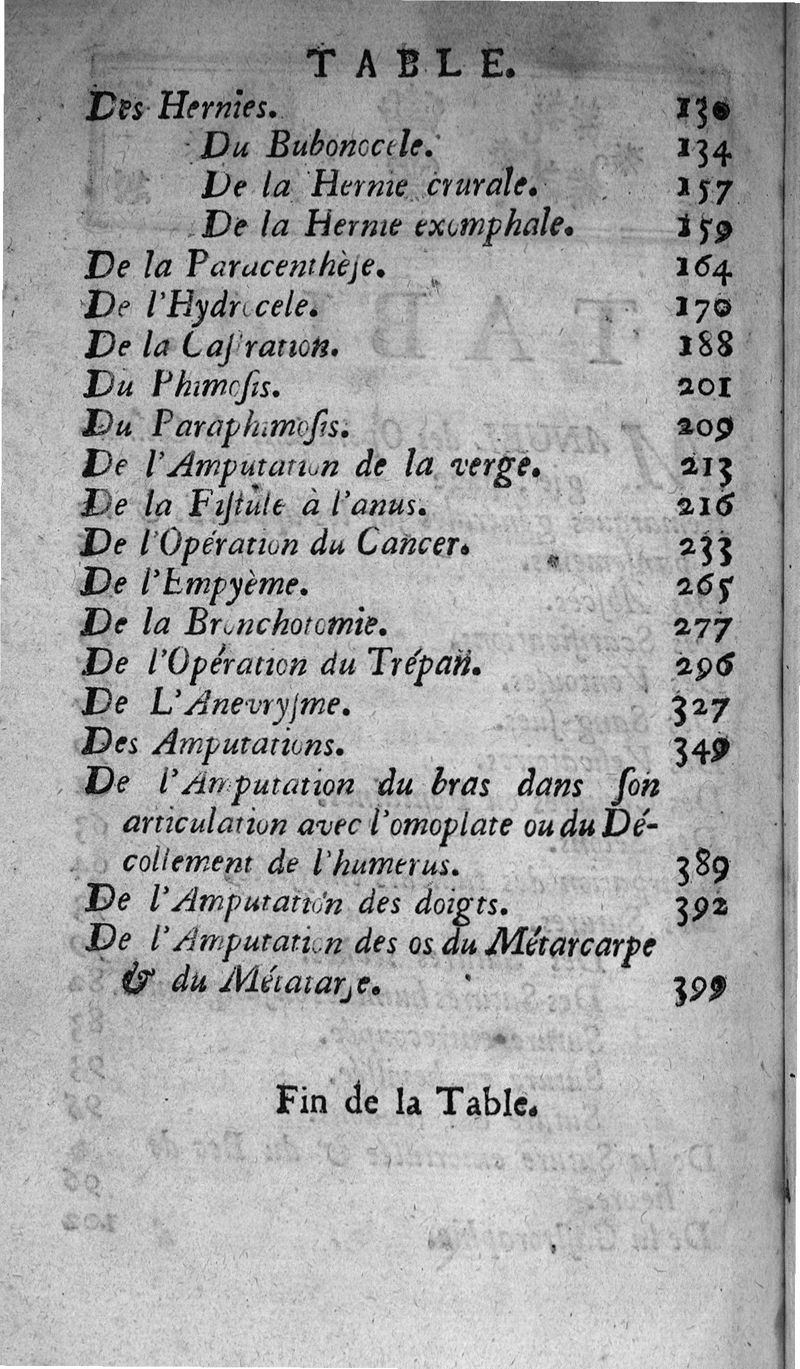 TABLE.
Des Hernies. 130
Du Bubonocele. 134
De la Hernie crurale. 157
De la Hernie exomphale. 159
De la Paracenthèſe. 164
De l'Hydrocele. 170
De la Caſtration. 188
Du Phimoſis. 201
Du Paraphimoſis. 209
De l'Amputation de la verge. 213
De la Fiſtule à l'anus. 216
De l'Opération du Cancer. 233
De l'Empyème. 265
De la Bronchotomie. 277
De l'Opération du Trépan. 296
De L'Anevryſme. 327
Des Amputations. 349
De l'Amputation du bras dans ſon
articulation avec l'omoplate ou du Dé-
collement de l'humerus. 389
De l'Amputation des doigts. 392
De l'Amputation des os du Métarcarpe
& du Métatarſe. 399
Fin de la Table.